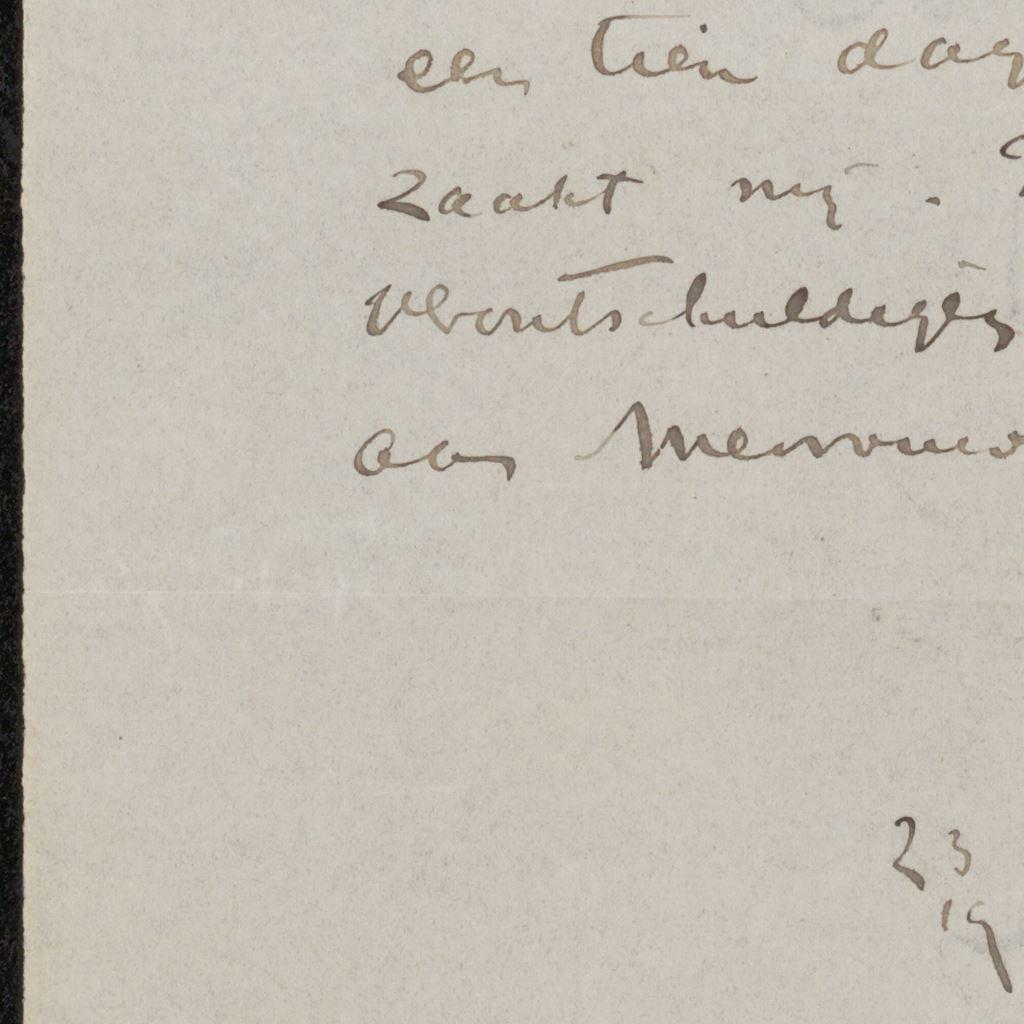 een tien dag
zaakt mij.
verontschuldigen
aan Mevrouw
23
19